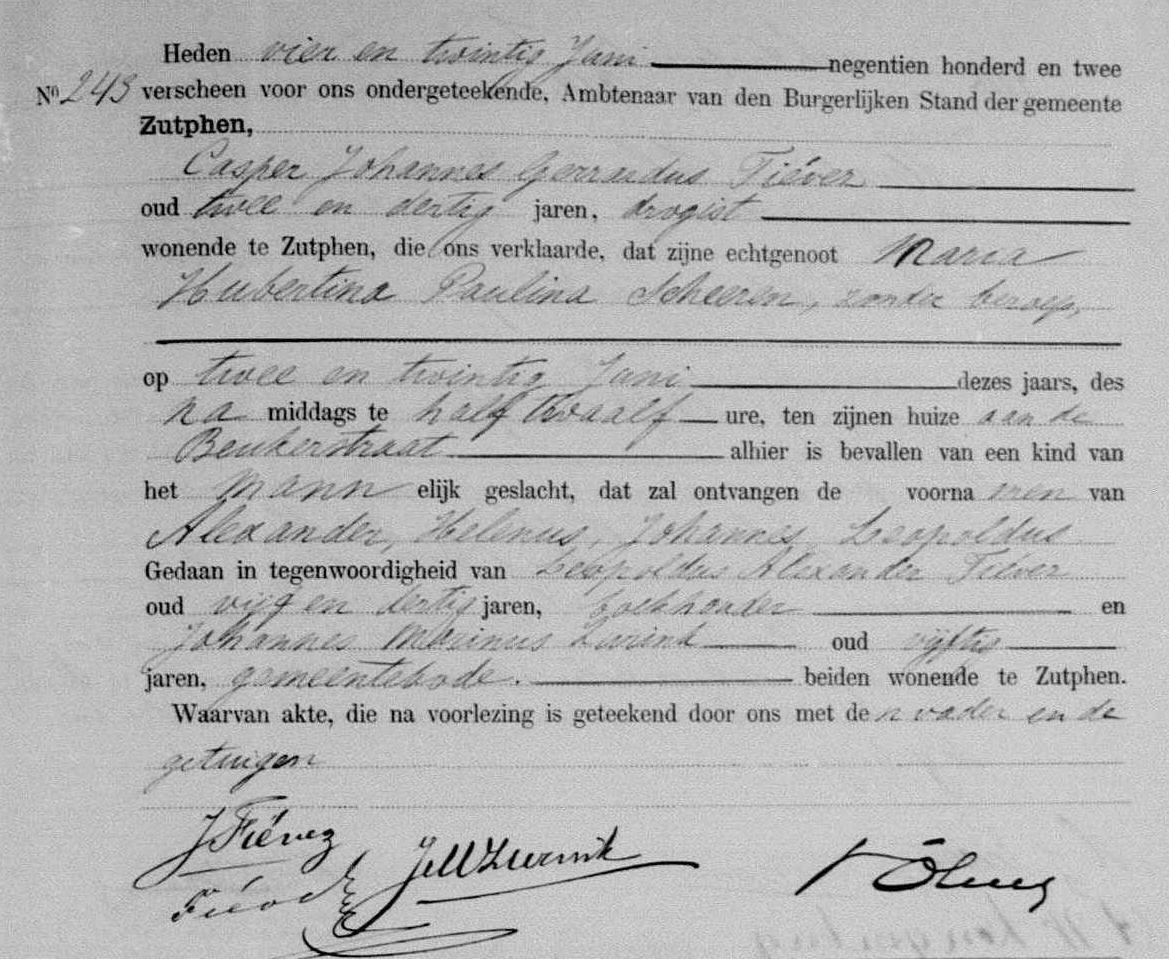 Heden vier en twintig Juni negentien honderd en twee
No 243 verscheen voor ons ondergeteekende, Ambtenaar van den Burgerlijken Stand der gemeente
Zutphen,
Casper Johannes Gerrardus Fiévez
oud twee en dertig jaren, drogist
wonende te Zutphen, die ons verklaarde, dat zijne echtgenoot Maria
Hubertina Paulina Scheeren, zonder beroep,
op twee en twintig Juni dezes jaars, des
na middags te half twaalf ure, ten zijnen huize aan de
Beukerstraat alhier is bevallen van een kind van
het mann elijk geslacht, dat zal ontvangen de voorna men van
Alexander, Helenus, Johannes, Leopoldus
Gedaan in tegenwoordigheid van Leopoldus Alexander Fiévez
oud vijf en dertig jaren, boekhouder en
Johannes Marinus oud vijftig
jaren, gemeentebode. beiden wonende te Zutphen.
Waarvan akte, die na voorlezing is geteekend door ons met de n vader en de
getuigen
J Fiévez